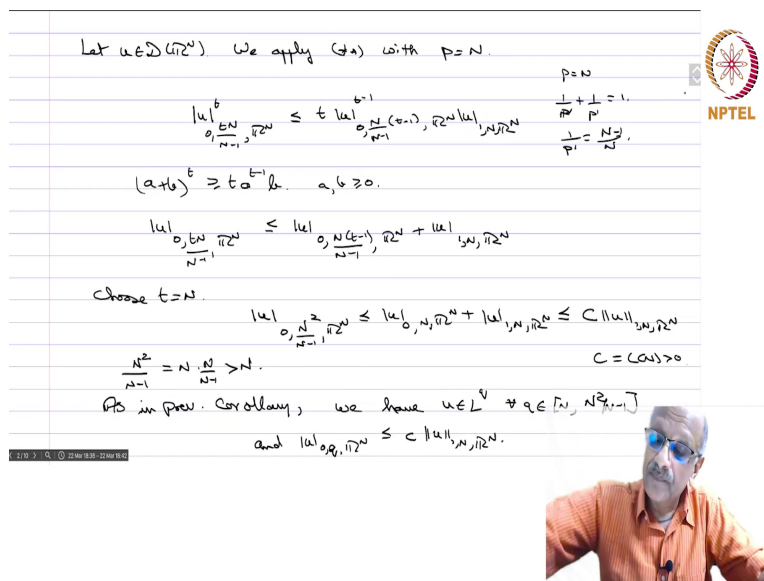 Let u∈D(ℝᴺ). We apply (**) with p=N.
p=N
1/p + 1/p' = 1.
1/p' = (N-1)/N.
|u|^t_{0, tN/(N-1), ℝᴺ} ≤ t |u|^{t-1}_{0, N/(N-1) (t-1), ℝᴺ} |u|_{1,N,ℝᴺ}
(a+b)^t ≥ t a^{t-1} b. a, b ≥ 0.
|u|_{0, tN/(N-1), ℝᴺ} ≤ |u|_{0, N(t-1)/(N-1), ℝᴺ} + |u|_{1,N,ℝᴺ}
Choose t=N.
|u|_{0, N²/(N-1), ℝᴺ} ≤ |u|_{0,N,ℝᴺ} + |u|_{1,N,ℝᴺ} ≤ C ‖u‖_{1,N,ℝᴺ}
N²/(N-1) = N · N/(N-1) > N. C = C(N) > 0
As in prev. Corollary, we have u∈L^q ∀ q∈[N, N²/N-1]
and |u|_{0,q,ℝᴺ} ≤ C ‖u‖_{1,N,ℝᴺ}.
NPTEL
2/10 22 Mar 18:38 – 22 Mar 18:42